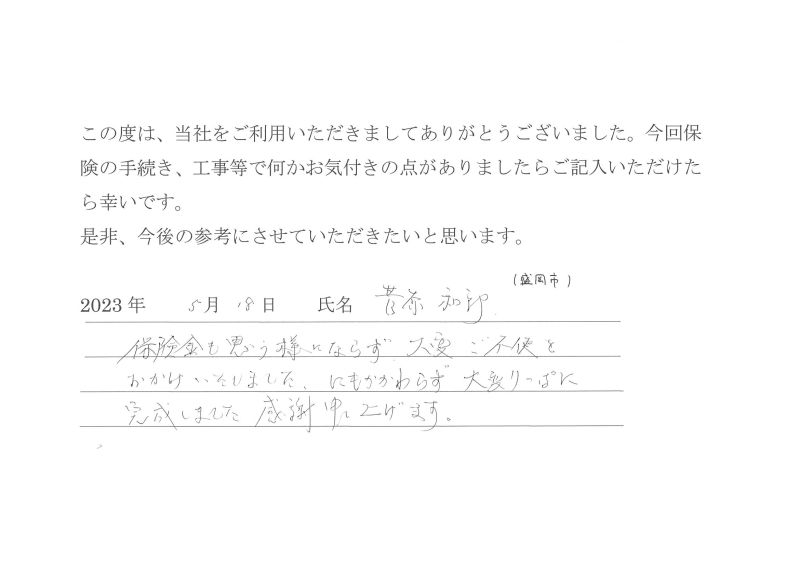 この度は、当社をご利用いただきましてありがとうございました。今回保
険の手続き、工事等で何かお気付きの点がありましたらご記入いただけた
ら幸いです。
是非、今後の参考にさせていただきたいと思います。
(盛岡市)
2023年 5月 18日 氏名 菅原
保険金も思う様にならず 大変ご不便を
おかけいたしました、にもかかわらず 大変りっぱに
完成しました 感謝申し上げます。